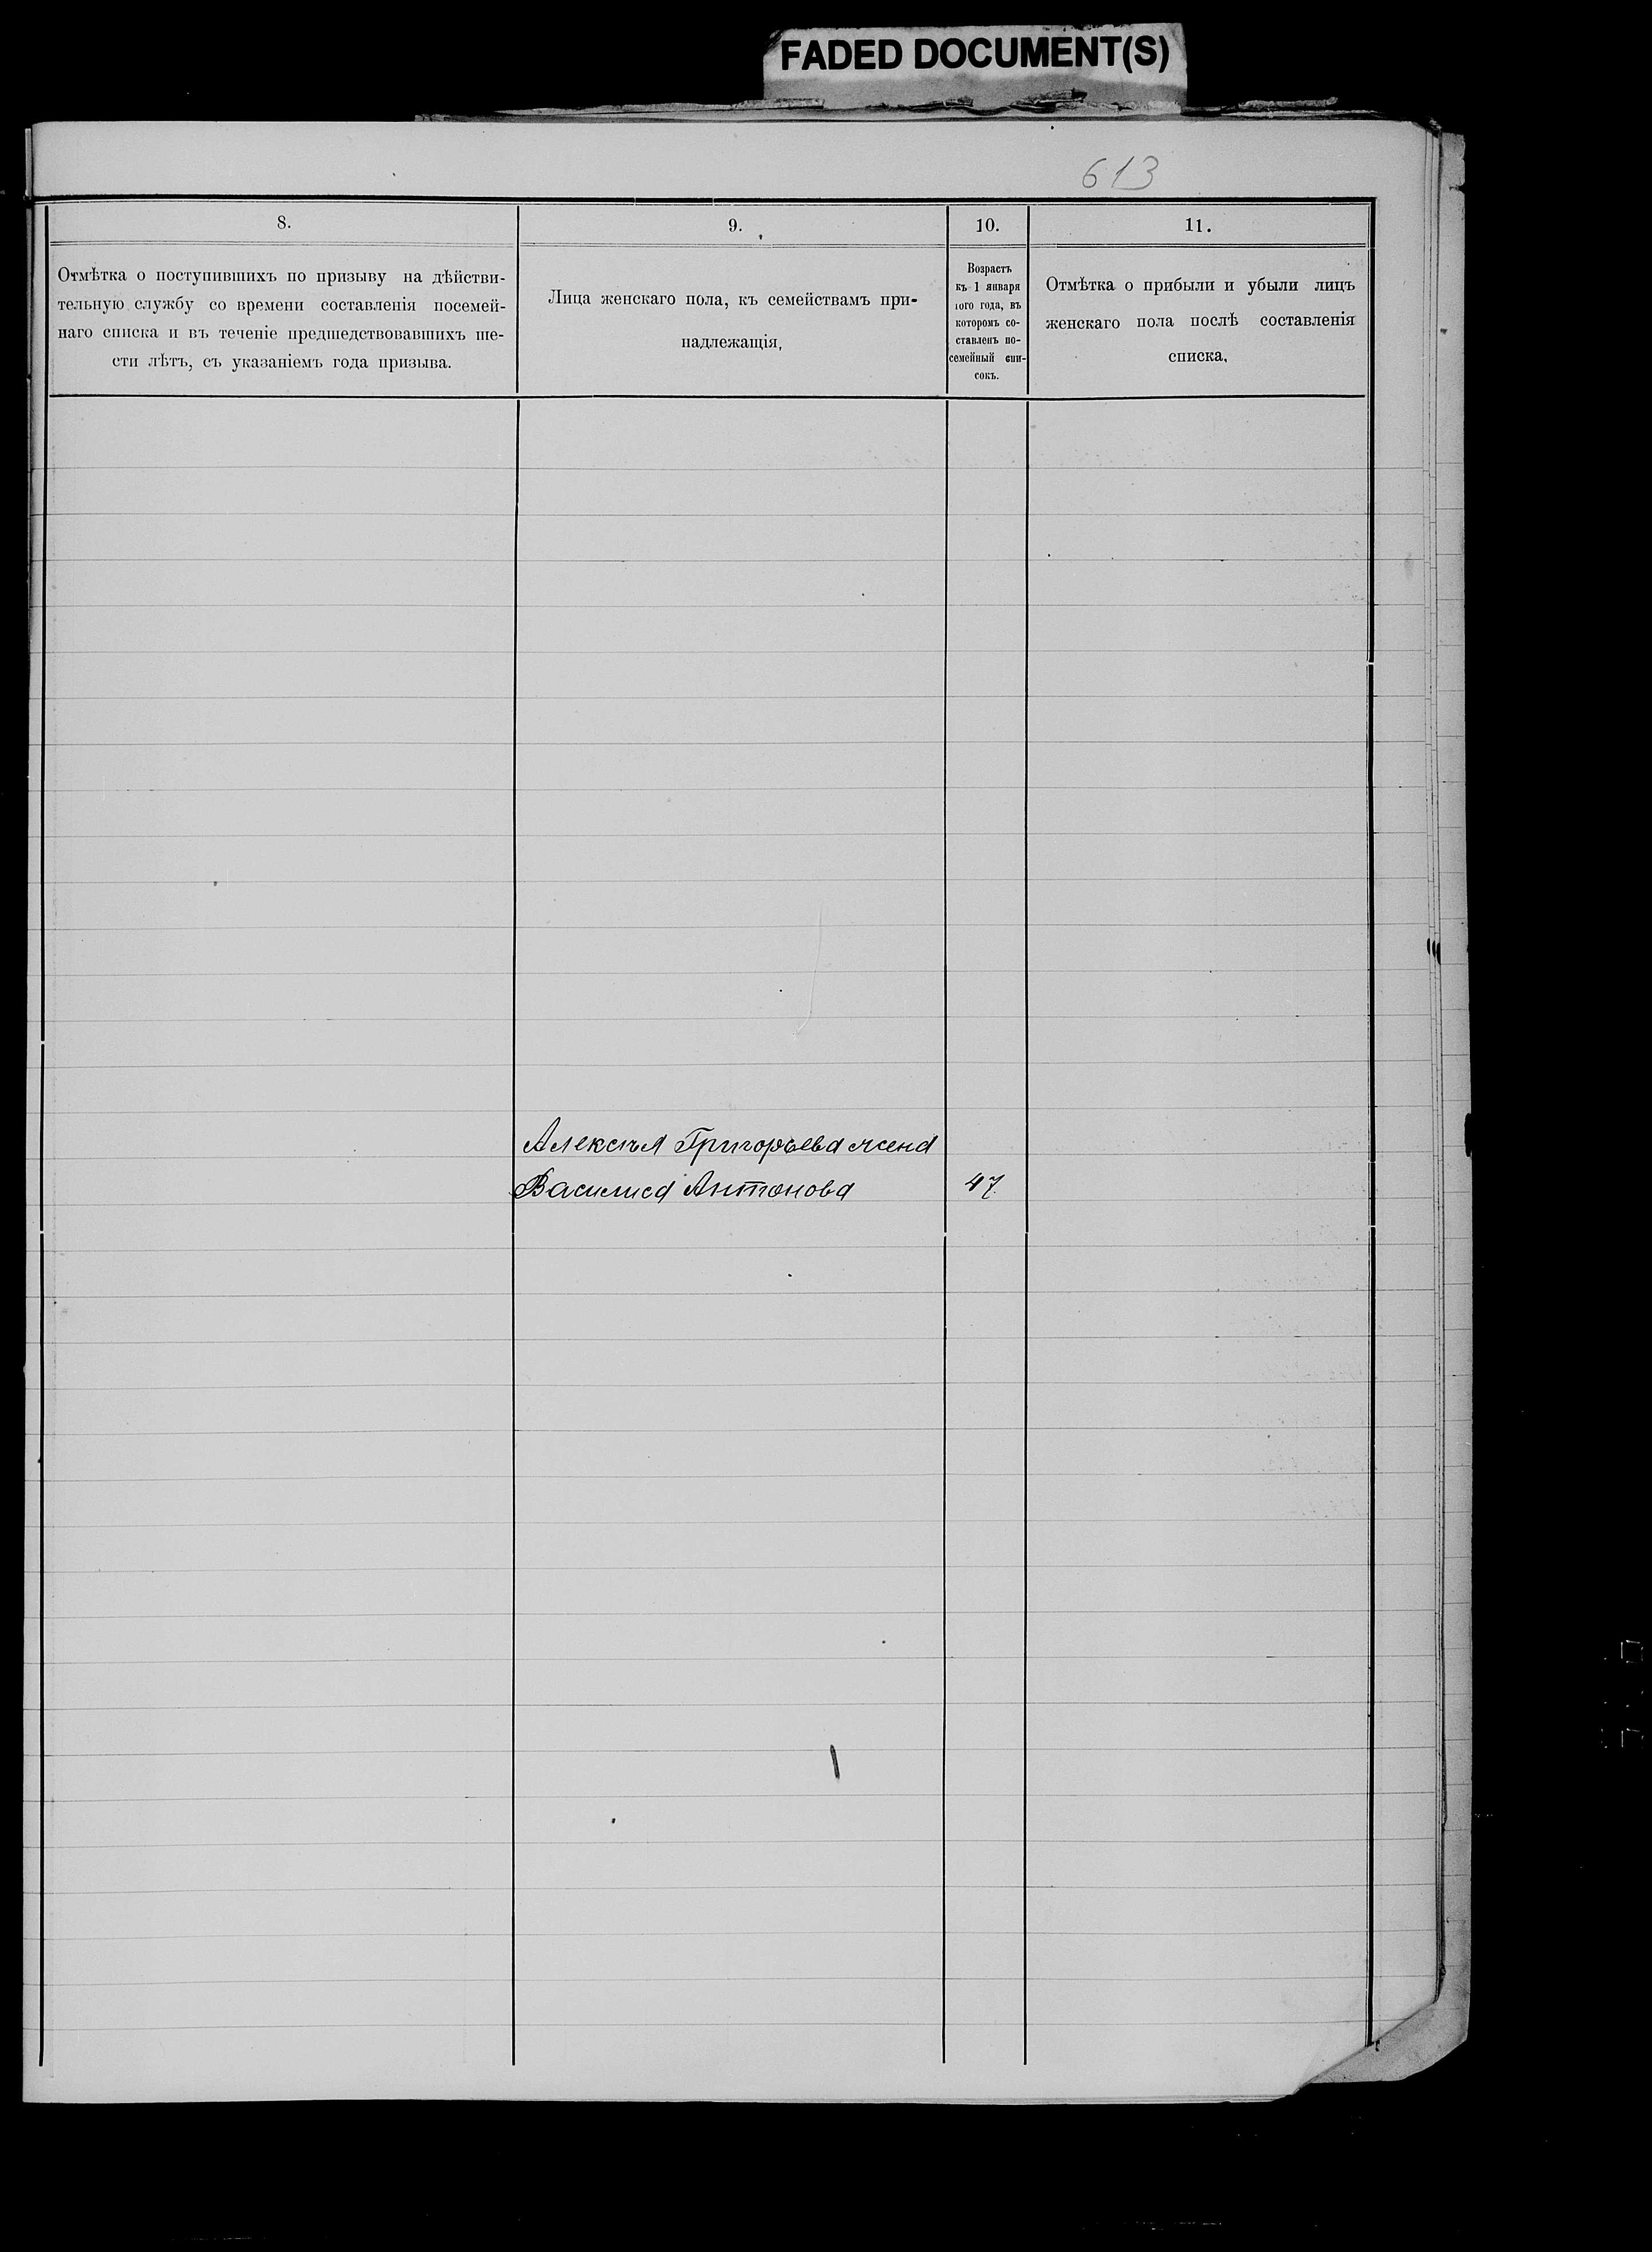 FADED DOCUMENT(S)
613
8.
Отмѣтка о поступившихъ по призыву на дѣйстви-
тельную службу со времени составленія посемей-
наго списка и въ теченіе предшедствовавшихъ ше-
сти лѣтъ, съ указаніемъ года призыва.
9.
Лица женскаго пола, къ семействамъ при-
надлежащія,
10.
Возрастъ
къ 1 января
того года, въ
которомъ со-
ставленъ по-
семейный спи-
сокъ.
11.
Отмѣтка о прибыли и убыли лицъ
женскаго пола послѣ составленія
списка,
Алексѣя Григорьева жена
Василиса Антонова 47